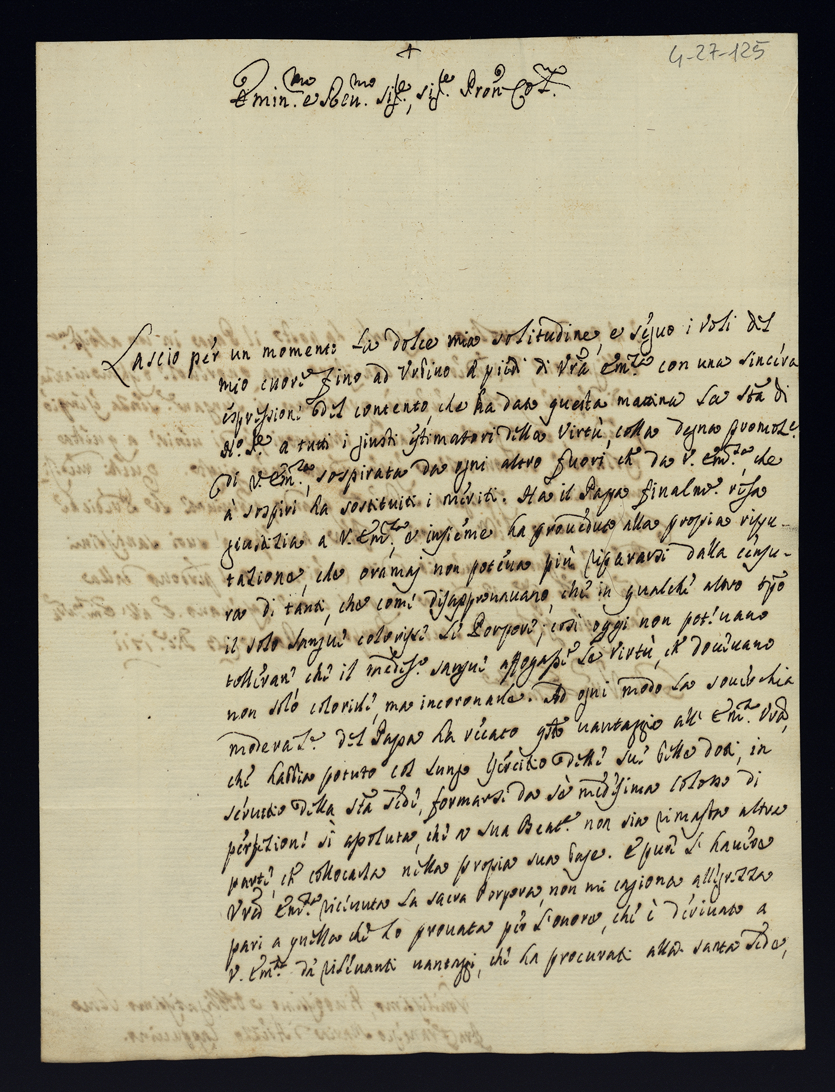 +
4-27-125
Emin.mo e Rev.mo Sig.re, Sig.re Pron Col.mo
Lascio per un momento la dolce mia solitudine, e seguo i voli del
mio cuore fino ad Urbino a piedi di Vrã Em.za con una sincera
espressione del contento, che ha dato questa mattina la Stã di
a tutti i giusti estimatori della Virtù, colla degna promoz.e
di V. Em.za, sospirata da ogni altro fuori che da V. Em.za che
à sospiri ha sostituiti i meriti. Ha il Papa finalm.e resa
giustizia a V. Em.za e insieme ha proveduto alla propria ripu-
tazione, che oramaj non poteva più ripararsi dalla censu-
ra di tanti, che come disapprovavano, che in qualche altro tpo
il solo sangue colorisse le Porpore, così oggi non potevano
tollerare che il medes.o sangue affogasse le virtù, che dovevano
non solo colorirle, ma incoronarle. Ad ogni modo la soverchia
moderaz.e del Papa ha recato qsto vantaggio all' Em.za Vrã,
che habbia potuto col lungo esercitio delle sue belle doti, in
servitio della Stã Sede, formarsi da sè medesima colosso di
perfezione sì assoluta, che a Sua Beat.e non sia rimasta altra
parte, che collocarla nella propria sua base. E pure l' havere
Vrã Em.za ricevuta la sacra Porpora, non mi cagiona allegrezza
pari a quella che ho provata per l'onore, che è derivato a
V. Em.za da rilevanti vantaggi, che ha procurati alla Santa Sede,